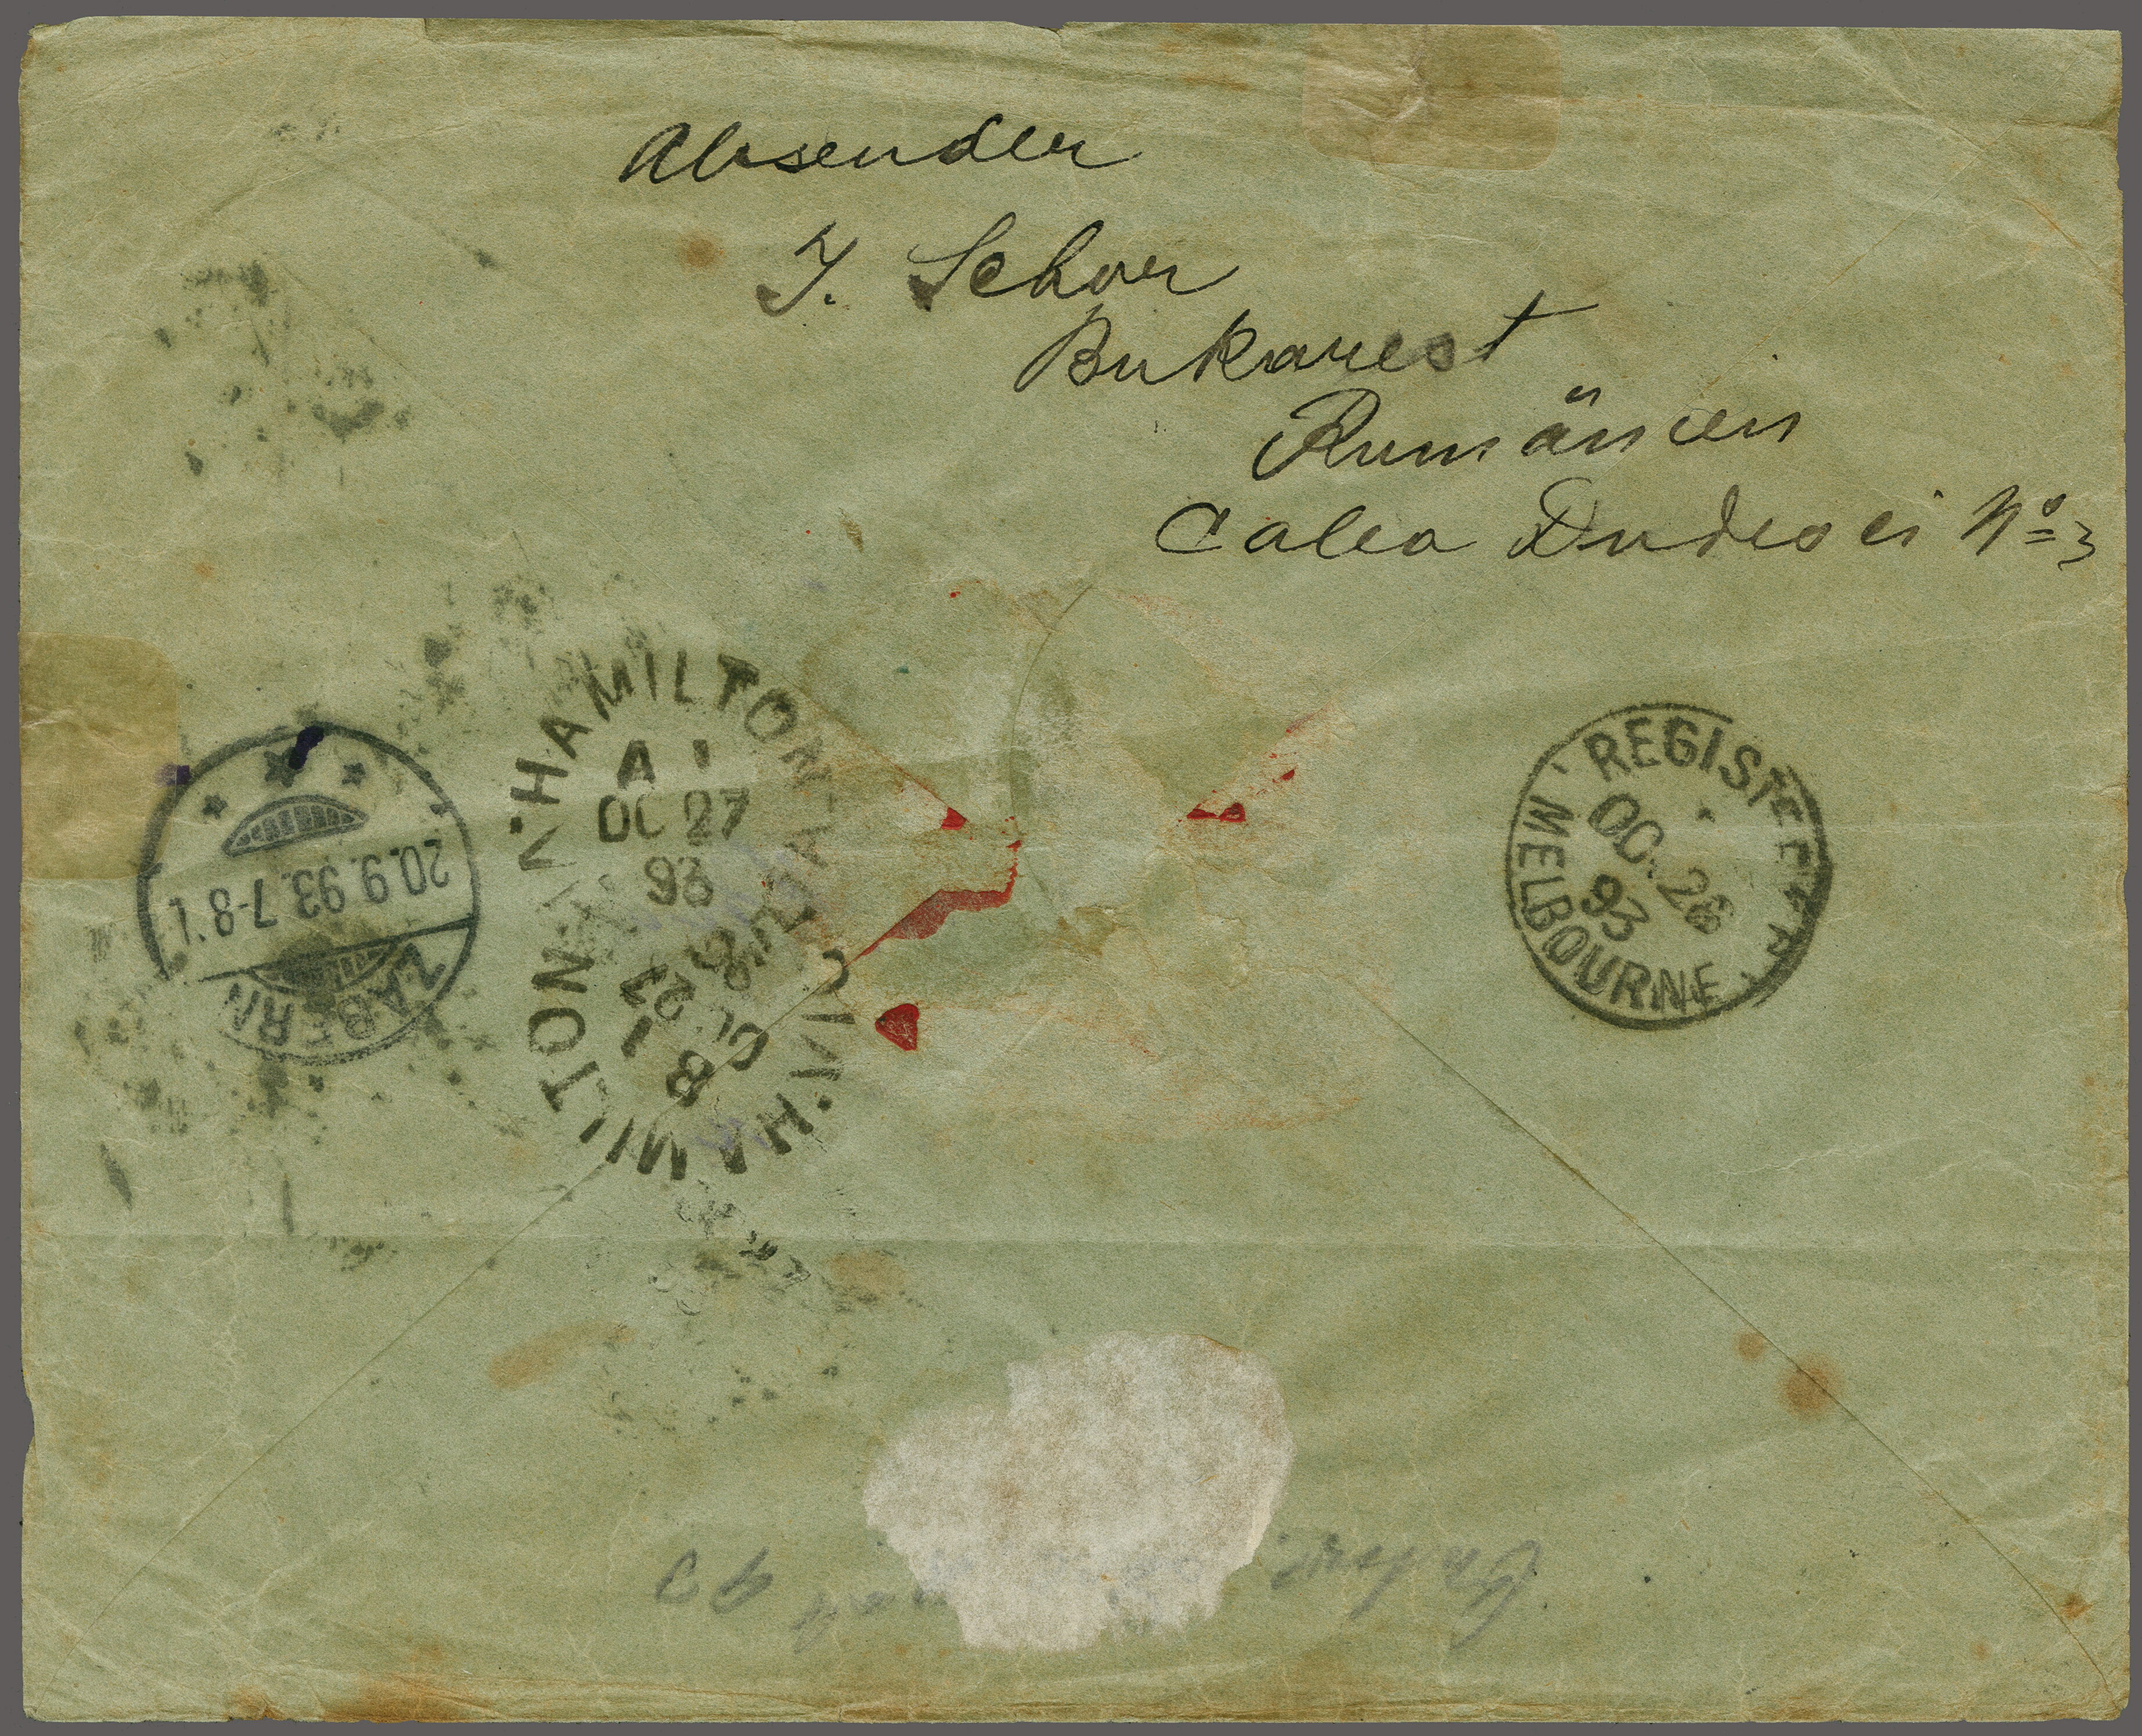 Absender
J. Schor
Bukarest
Rumänien
Calea Dudesci Nº 3
HAMILTON
A 1
OC 27
93
HAMILTON. VIC
B 1
OC 27
REGISTERED
MELBOURNE
OC. 26
93
ZABERN
20.9.93. 7-8 V.
93